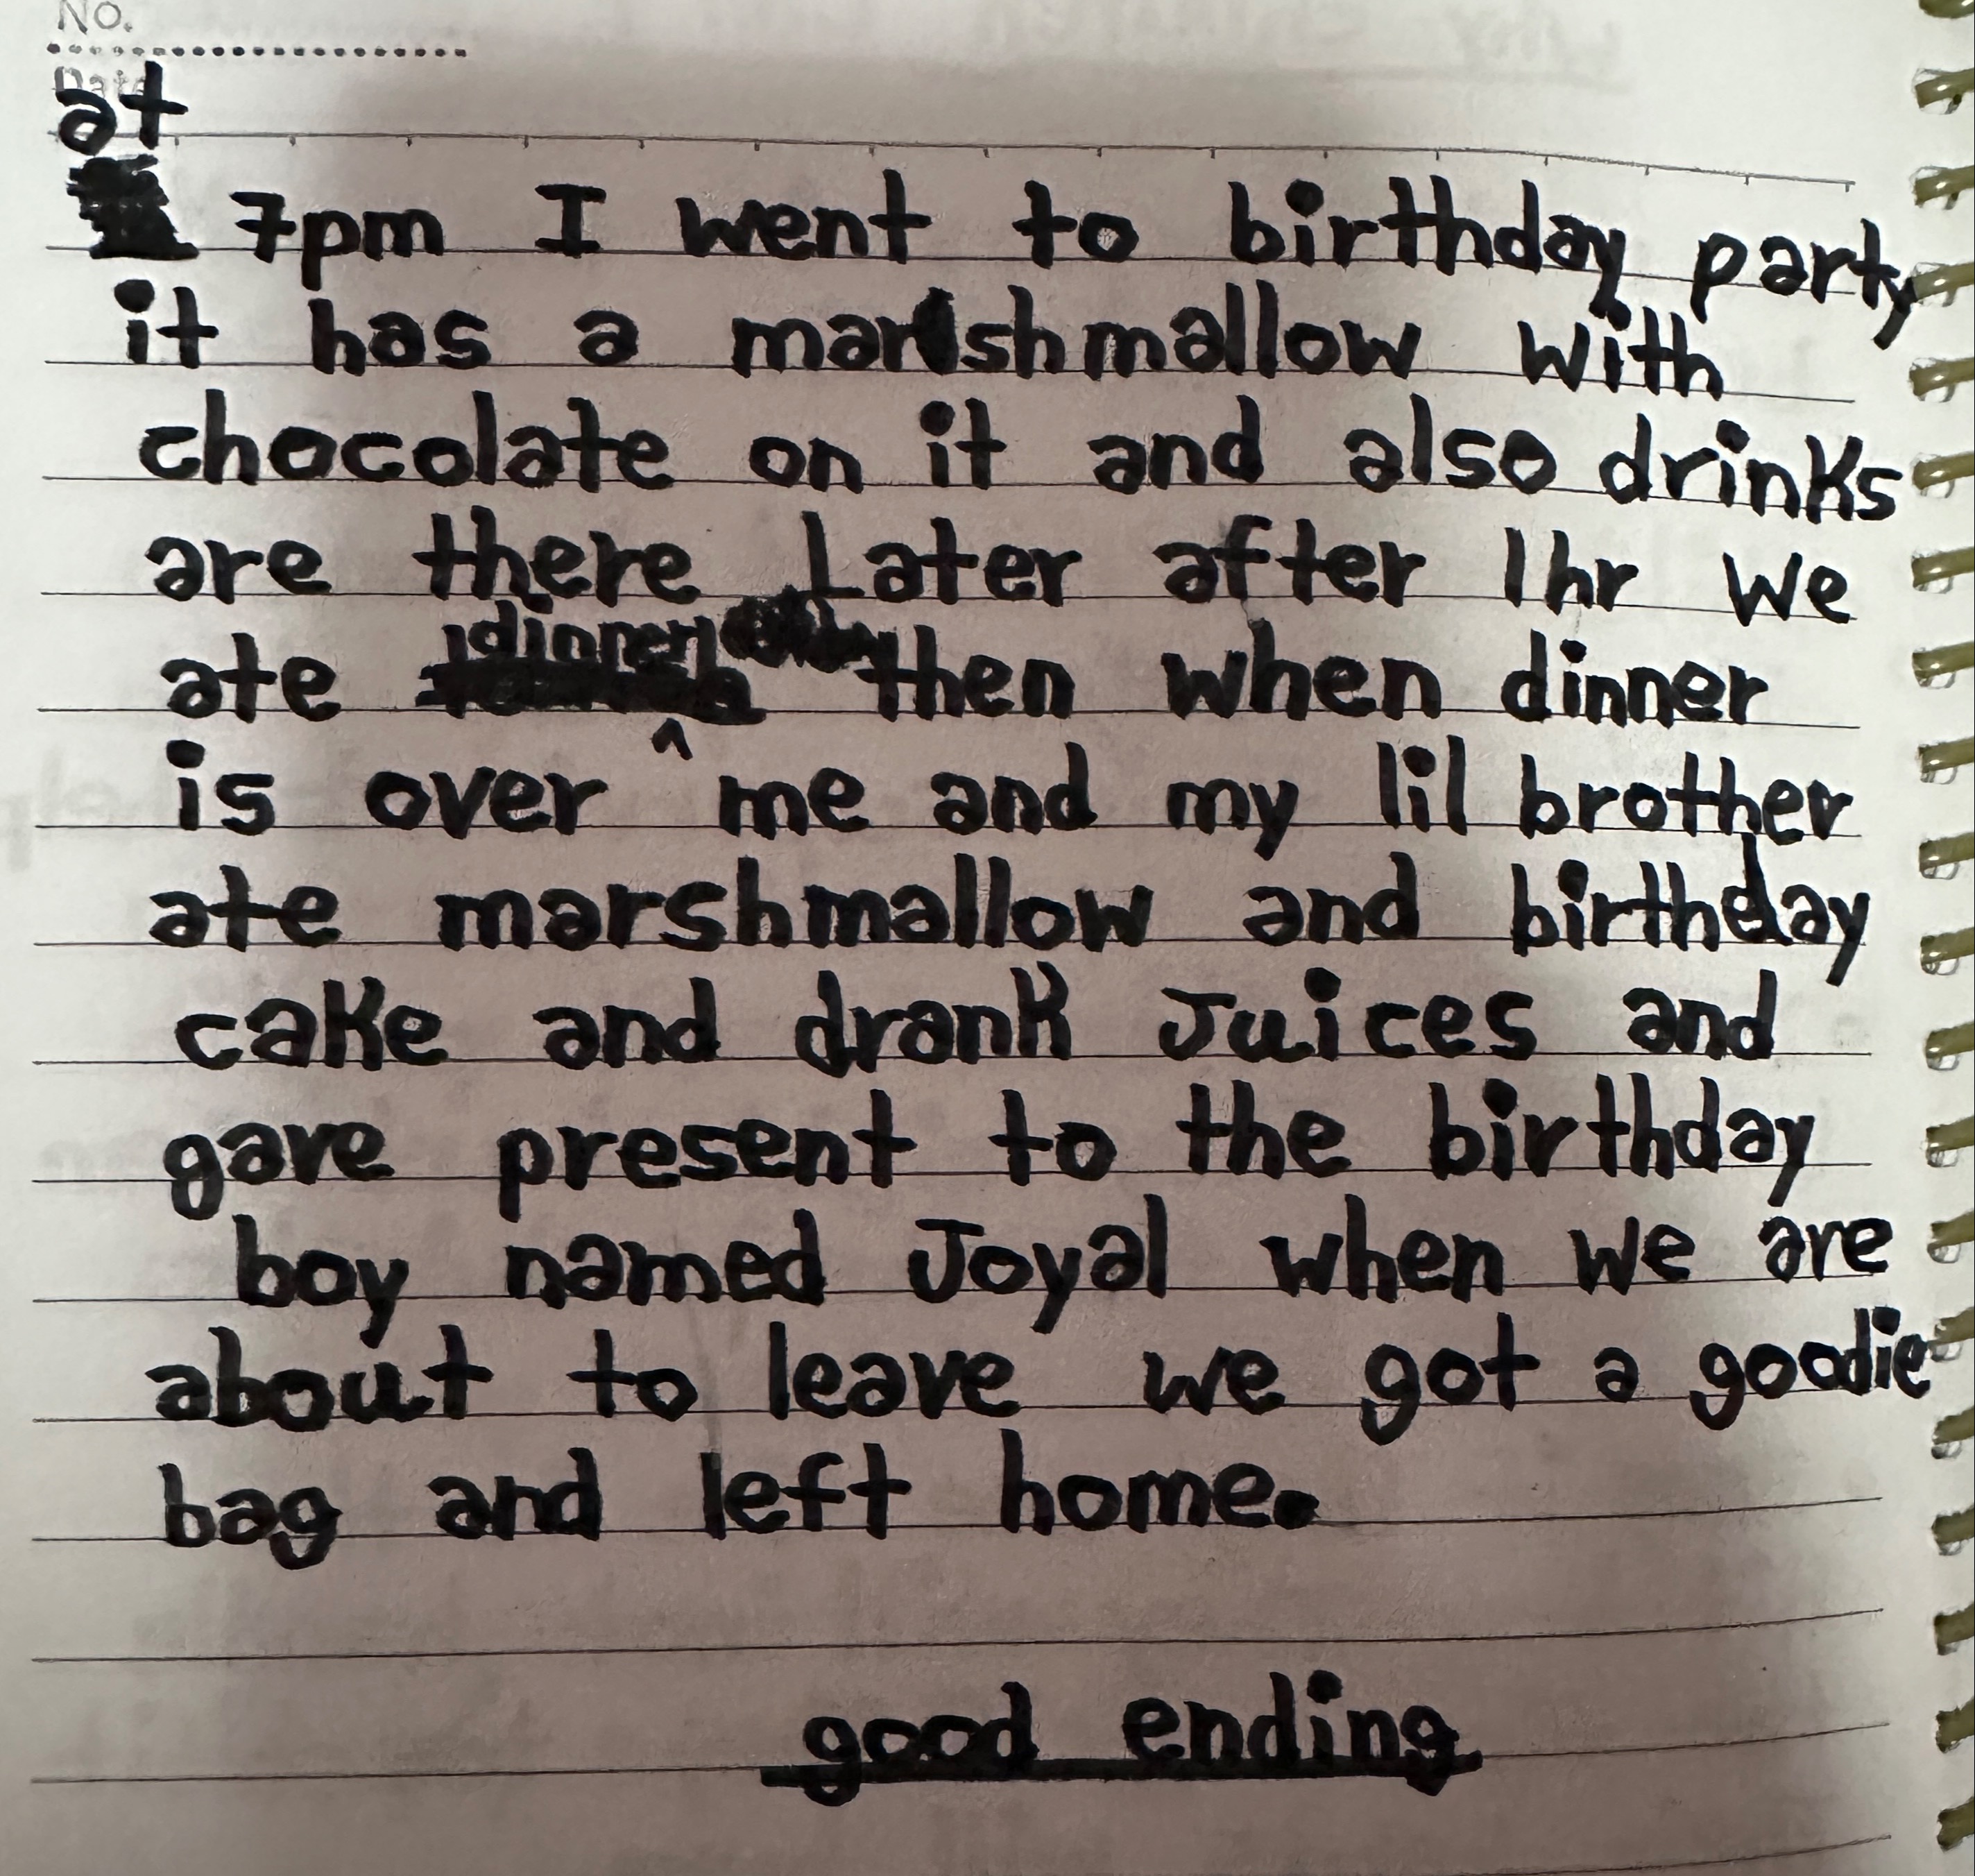 No.
Date
at
7pm I went to birthday party
it has a marshmallow with
chocolate on it and also drinks
are there Later after 1hr we
ate dinner then when dinner
is over me and my lil brother
ate marshmallow and birthday
cake and drank Juices and
gave present to the birthday
boy named Joyal when we are
about to leave we got a goodie
bag and left home.
good ending